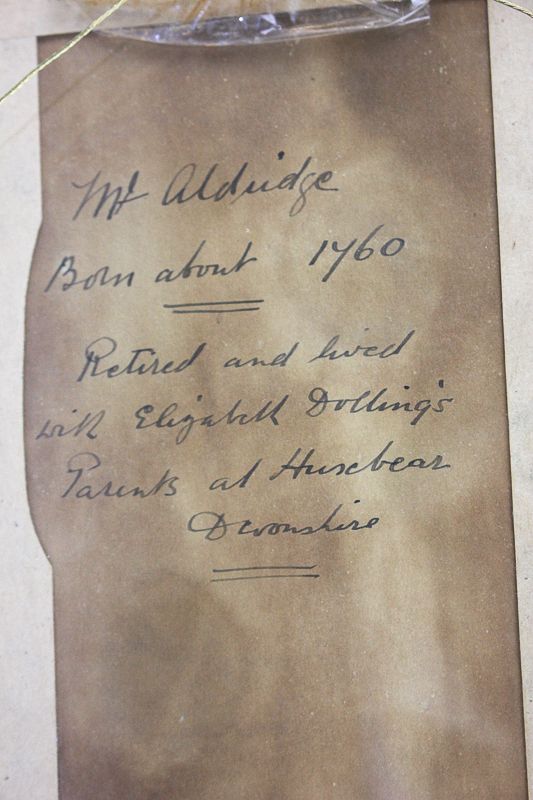 Mr Aldridge
Born about 1760
Retired and lived
with Elizabeth Dolling's
Parents at Huxebear
Devonshire